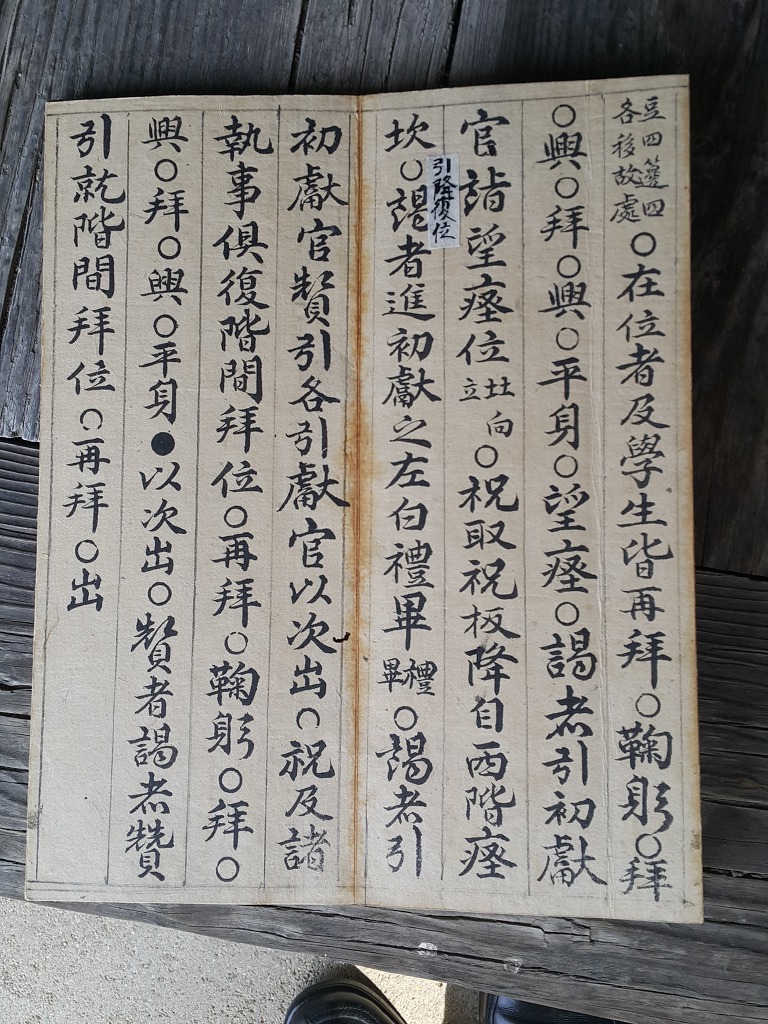 豆四籩四
各移故處
○在位者及學生皆再拜○鞠躬○拜
○興○拜○興○平身○望瘞○謁者引初獻
官詣望瘞位北向立○祝取祝板降自西階瘞
引降復位
坎○謁者進初獻之左白禮畢禮畢○謁者引
初獻官贊引各引獻官以次出○祝及諸
執事俱復階間拜位○再拜○鞠躬○拜○
興○拜○興○平身●以次出○贊者謁者贊
引就階間拜位○再拜○出